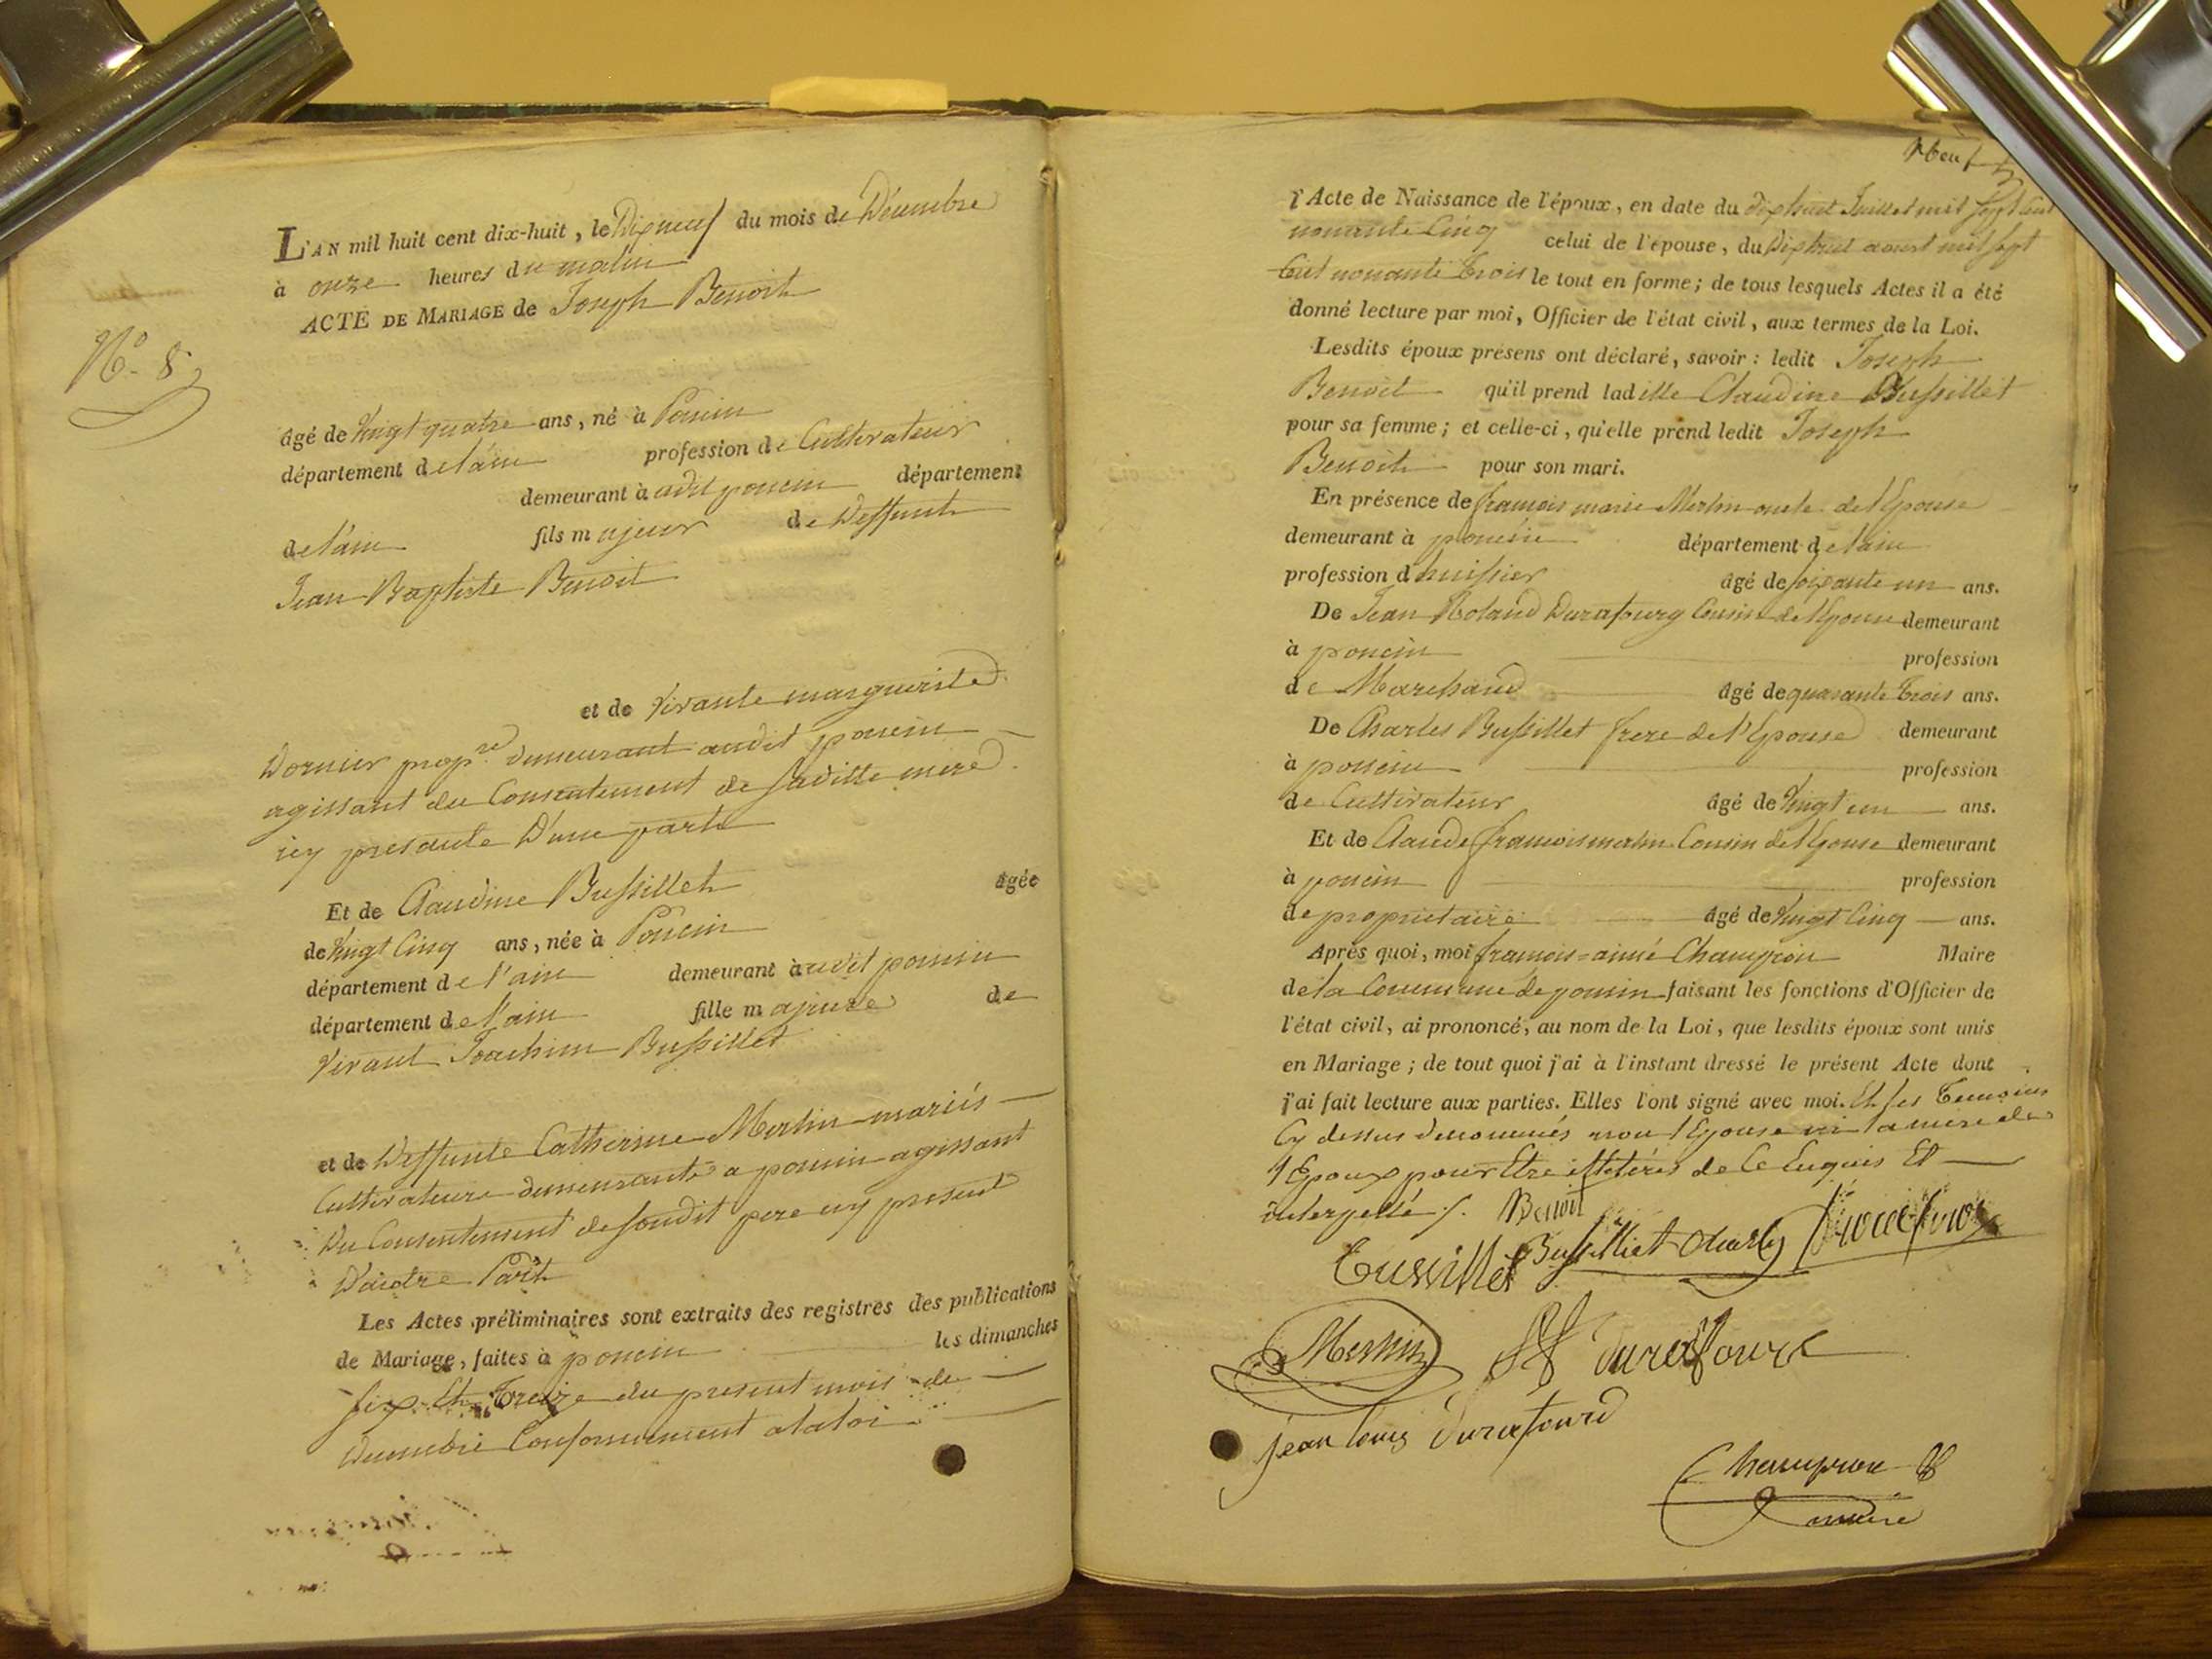 L'AN mil huit cent dix-huit, le Dix neuf du mois de Décembre
à onze heures du matin
ACTE DE MARIAGE de Joseph Benoit
N.o 8
âgé de Vingt quatre ans, né à Poncin
département de l'ain profession de Cultivateur
demeurant à audit poncin département
de l'ain fils majeur de Deffunt
Jean Baptiste Benoit
et de Vivante marguerite
Dornier prop.re demeurant audit poncin
agissant du Consentement de saditte mere
icy presente D'une part
Et de Claudine Bussillet âgée
de Vingt Cinq ans, née à Poncin
département de l'ain demeurant à audit poncin
département de l'ain fille majeure de
Vivant Joachim Bussillet
et de Deffunte Catherine Merlin mariés
Cultivateurs demeurants a poncin agissant
Du Consentement de sondit pere icy present
D'autre Part
Les Actes préliminaires sont extraits des registres des publications
de Mariage, faites à poncin les dimanches
six Et Treize du present mois de
Decembre Conformement a la loi
Neuf
l'Acte de Naissance de l'époux, en date du dix huit Juillet mil sept Cent
nonante Cinq celui de l'épouse, du Dix huit aoust mil sept
Cent nonante Trois le tout en forme; de tous lesquels Actes il a été
donné lecture par moi, Officier de l'état civil, aux termes de la Loi.
Lesdits époux présens ont déclaré, savoir: ledit Joseph
Benoit qu'il prend ladille Claudine Bussillet
pour sa femme; et celle-ci, qu'elle prend ledit Joseph
Benoit pour son mari.
En présence de francois marie Merlin oncle de l'Epouse
demeurant à poncin département de l'ain
profession d huissier âgé de soixante un ans.
De Jean Roland Durafourg Cousin de l'Epouse demeurant
à poncin profession
de Marchand âgé de quarante Trois ans.
De Charles Bussillet frere de l'Epouse demeurant
à poncin profession
de Cultivateur âgé de Vingt un ans.
Et de Claude francois merlin Cousin de l'Epouse demeurant
à poncin profession
de proprietaire âgé de Vingt Cinq ans.
Après quoi, moi francois=aimé Champion Maire
de la Commune de poncin faisant les fonctions d'Officier de
l'état civil, ai prononcé, au nom de la Loi, que lesdits époux sont unis
en Mariage; de tout quoi j'ai à l'instant dressé le présent Acte dont
j'ai fait lecture aux parties. Elles l'ont signé avec moi. Et les Temoins
Cy dessus denommés non l'Epouse ni la mere de
l'Epoux pour Etre illetérés de Ce Enquis Et
interpellé /. Benoit
Bussilliet Charly
Bussillet
Merlin Durafour
jean louis Durafourd
Champion
maire